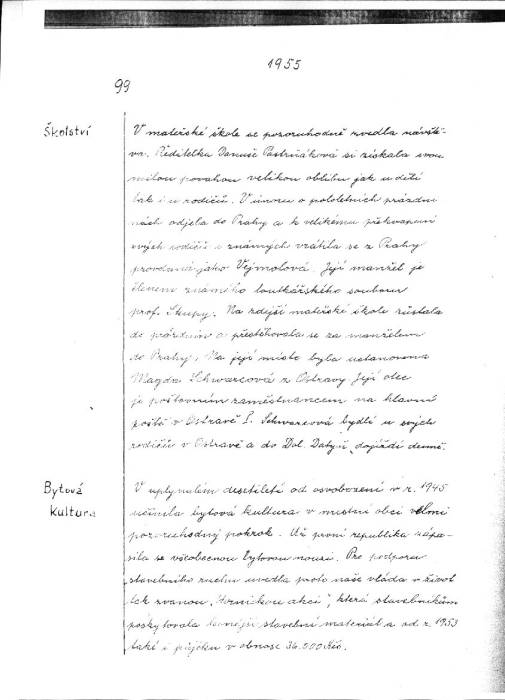 1955
99
Školství
V mateřské škole se pozoruhodně zvedla návště-
va. Ředitelka Danuše Pastrňáková si získala svou
milou povahou velikou oblibu jak u dětí
tak i u rodičů. V únoru o pololetních prázdni
nách odjela do Prahy a k velikému překvapení
svých rodičů i známých vrátila se z Prahy
provdaná jako Vejmolová. Její manžel je
členem známého loutkářského souboru
prof. Skupy. Na zdejší mateřské škole zůstala
do prázdnin a přestěhovala se za manželem
do Prahy. Na její místo byla ustanovena
Magda Schwarcová z Ostravy. Její otec
je poštovním zaměstnancem na hlavní
poště v Ostravě I. Schwarcová bydlí u svých
rodičů v Ostravě a do Dol. Datyň dojíždí denně.
Bytová
kultura
V uplynulém desetiletí od osvobození v r. 1945
učinila bytová kultura v místní obci velmi
pozoruhodný pokrok. Už první republika zápa-
sila se všeobecnou bytovou nouzí. Pro podporu
stavebního ruchu uvedla proto naše vláda v život
tak zvanou "Hornickou akci", která stavebníkům
poskytovala levnější stavební materiál a od r. 1953
také i půjčku v obnose 36.000 Kčs.